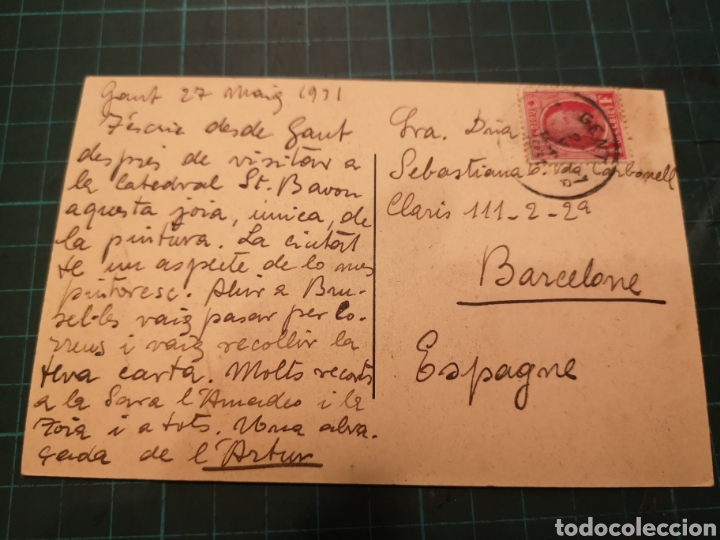 Gant 27 Maig 1971
T'escric desde Gant
després de visitar a
la catedral St. Bavon
aquesta joia, única, de
la pintura. La ciutat
te un aspecte de lo mes
pintoresc. Ahir a Bru-
sel·les vaig pasar per Co-
rreus i vaig recollir la
teva carta. Molts records
a la Sara l'Amadeo i la
Zoia i a tots. Una abra-
çada de l'Artur
Sra. Dña
Sebastiana C. Vda. Carbonell
Claris 111-2-2ª
Barcelone
Espagne
GENT
todocoleccion.net